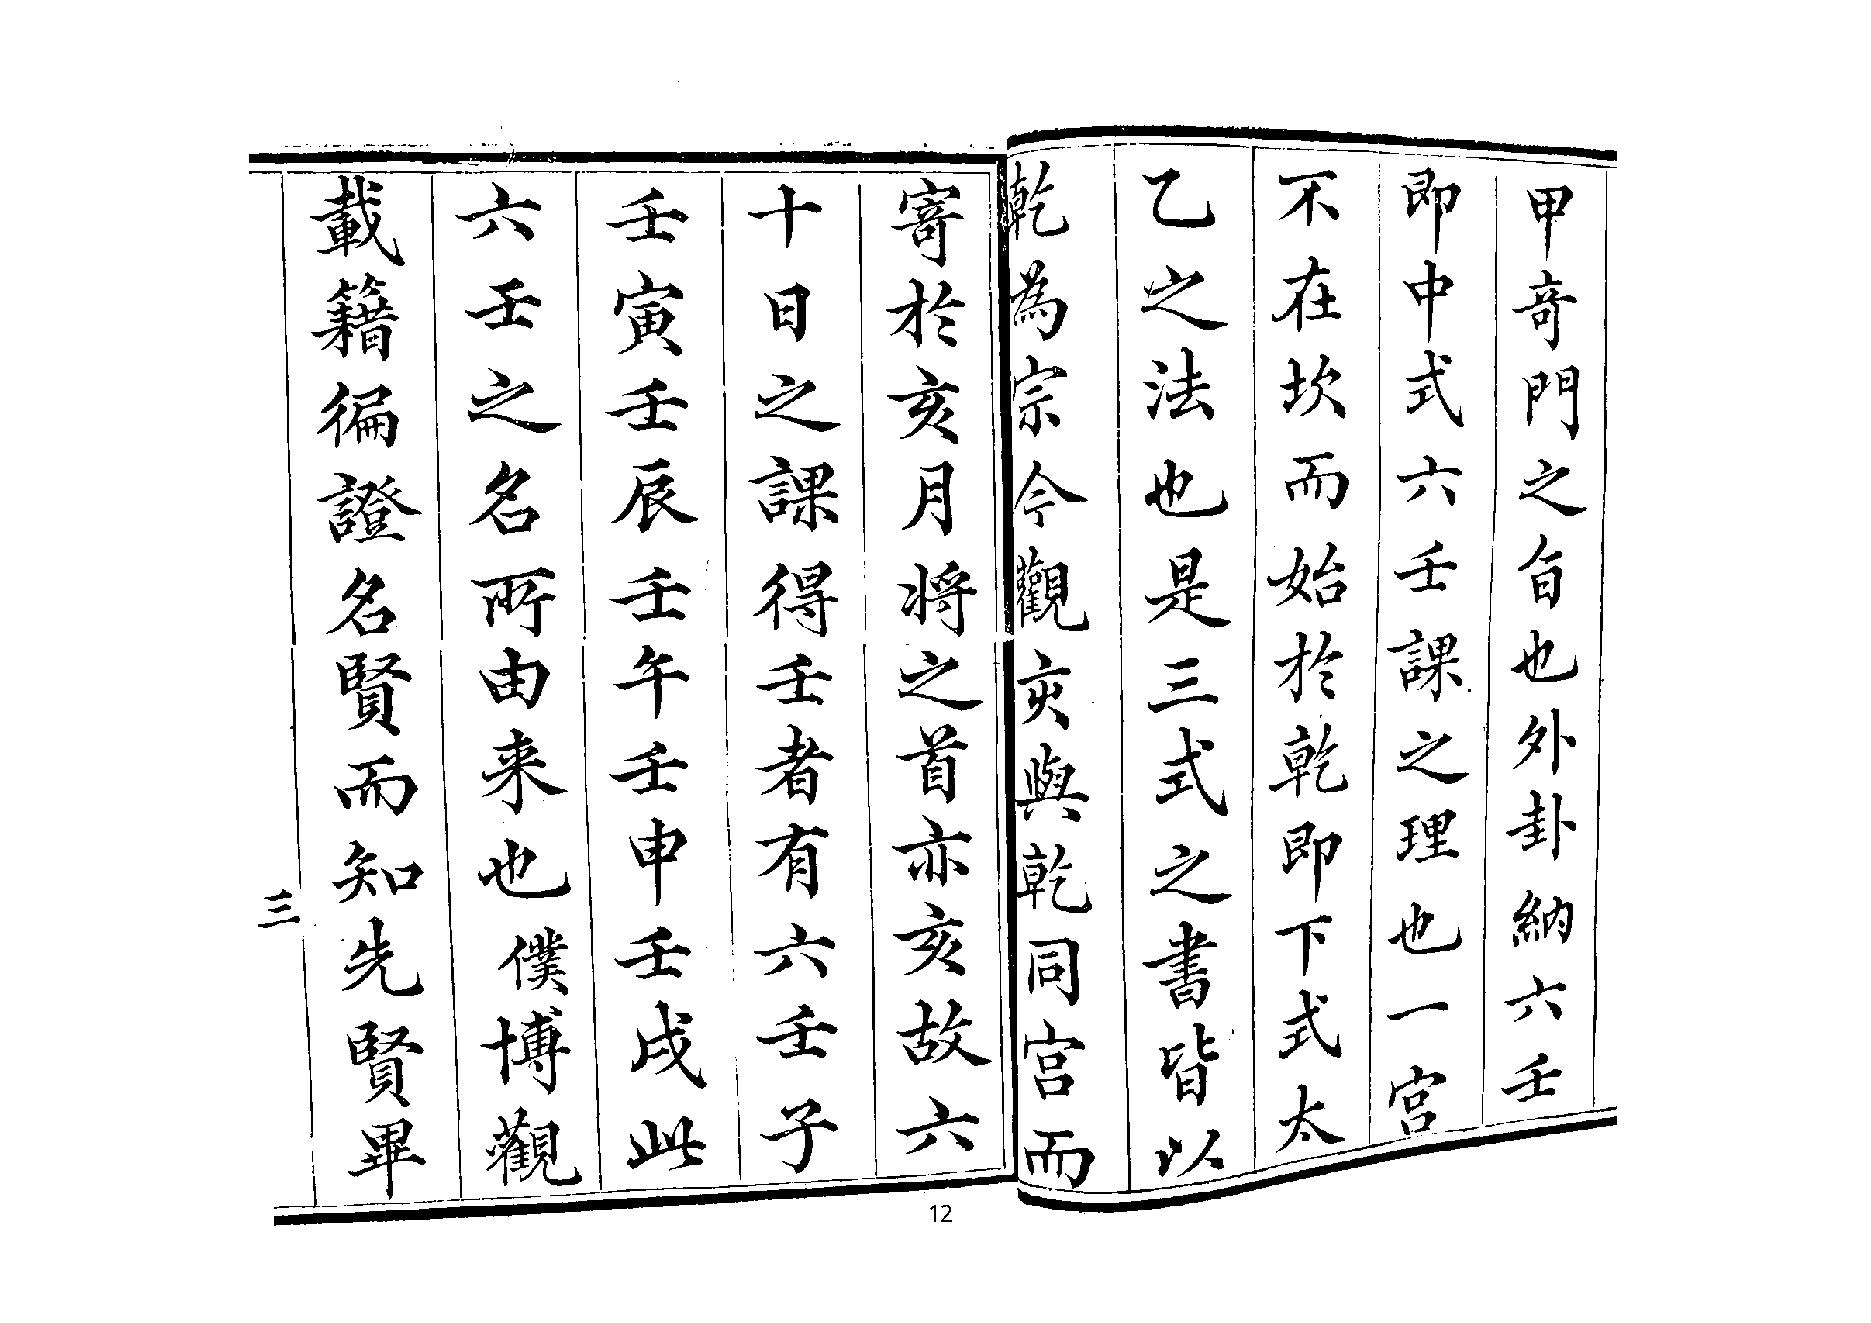 甲奇門之旨也外卦納六壬
即中式六壬課之理也一宮
不在坎而始於乾即下式太
乙之法也是三式之書皆以
乾為宗今觀亥與乾同宮而
寄於亥月將之首亦亥故六
十日之課得壬者有六壬子
壬寅壬辰壬午壬申壬戌此
六壬之名所由来也僕博觀
載籍徧證名賢而知先賢畢
三
12